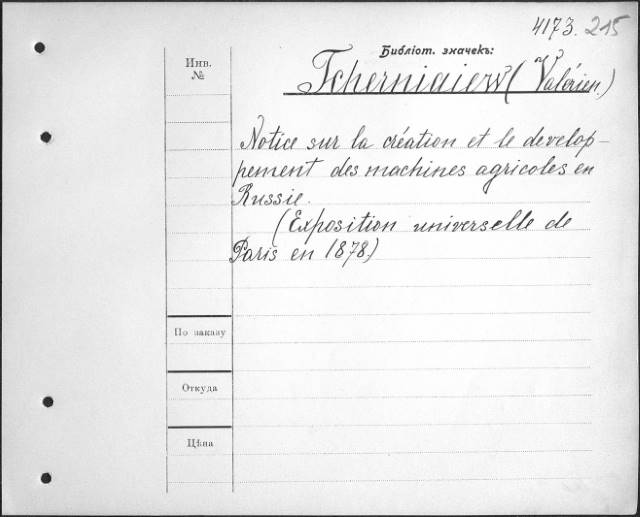 4173. 215
Библіот. значекъ:
Инв.
№
Tcherniaiew (Valérien.)
Notice sur la création et le develop-
pement des machines agricoles en
Russie.
(Exposition universelle de
Paris en 1878.)
По заказу
Откуда
Цѣна